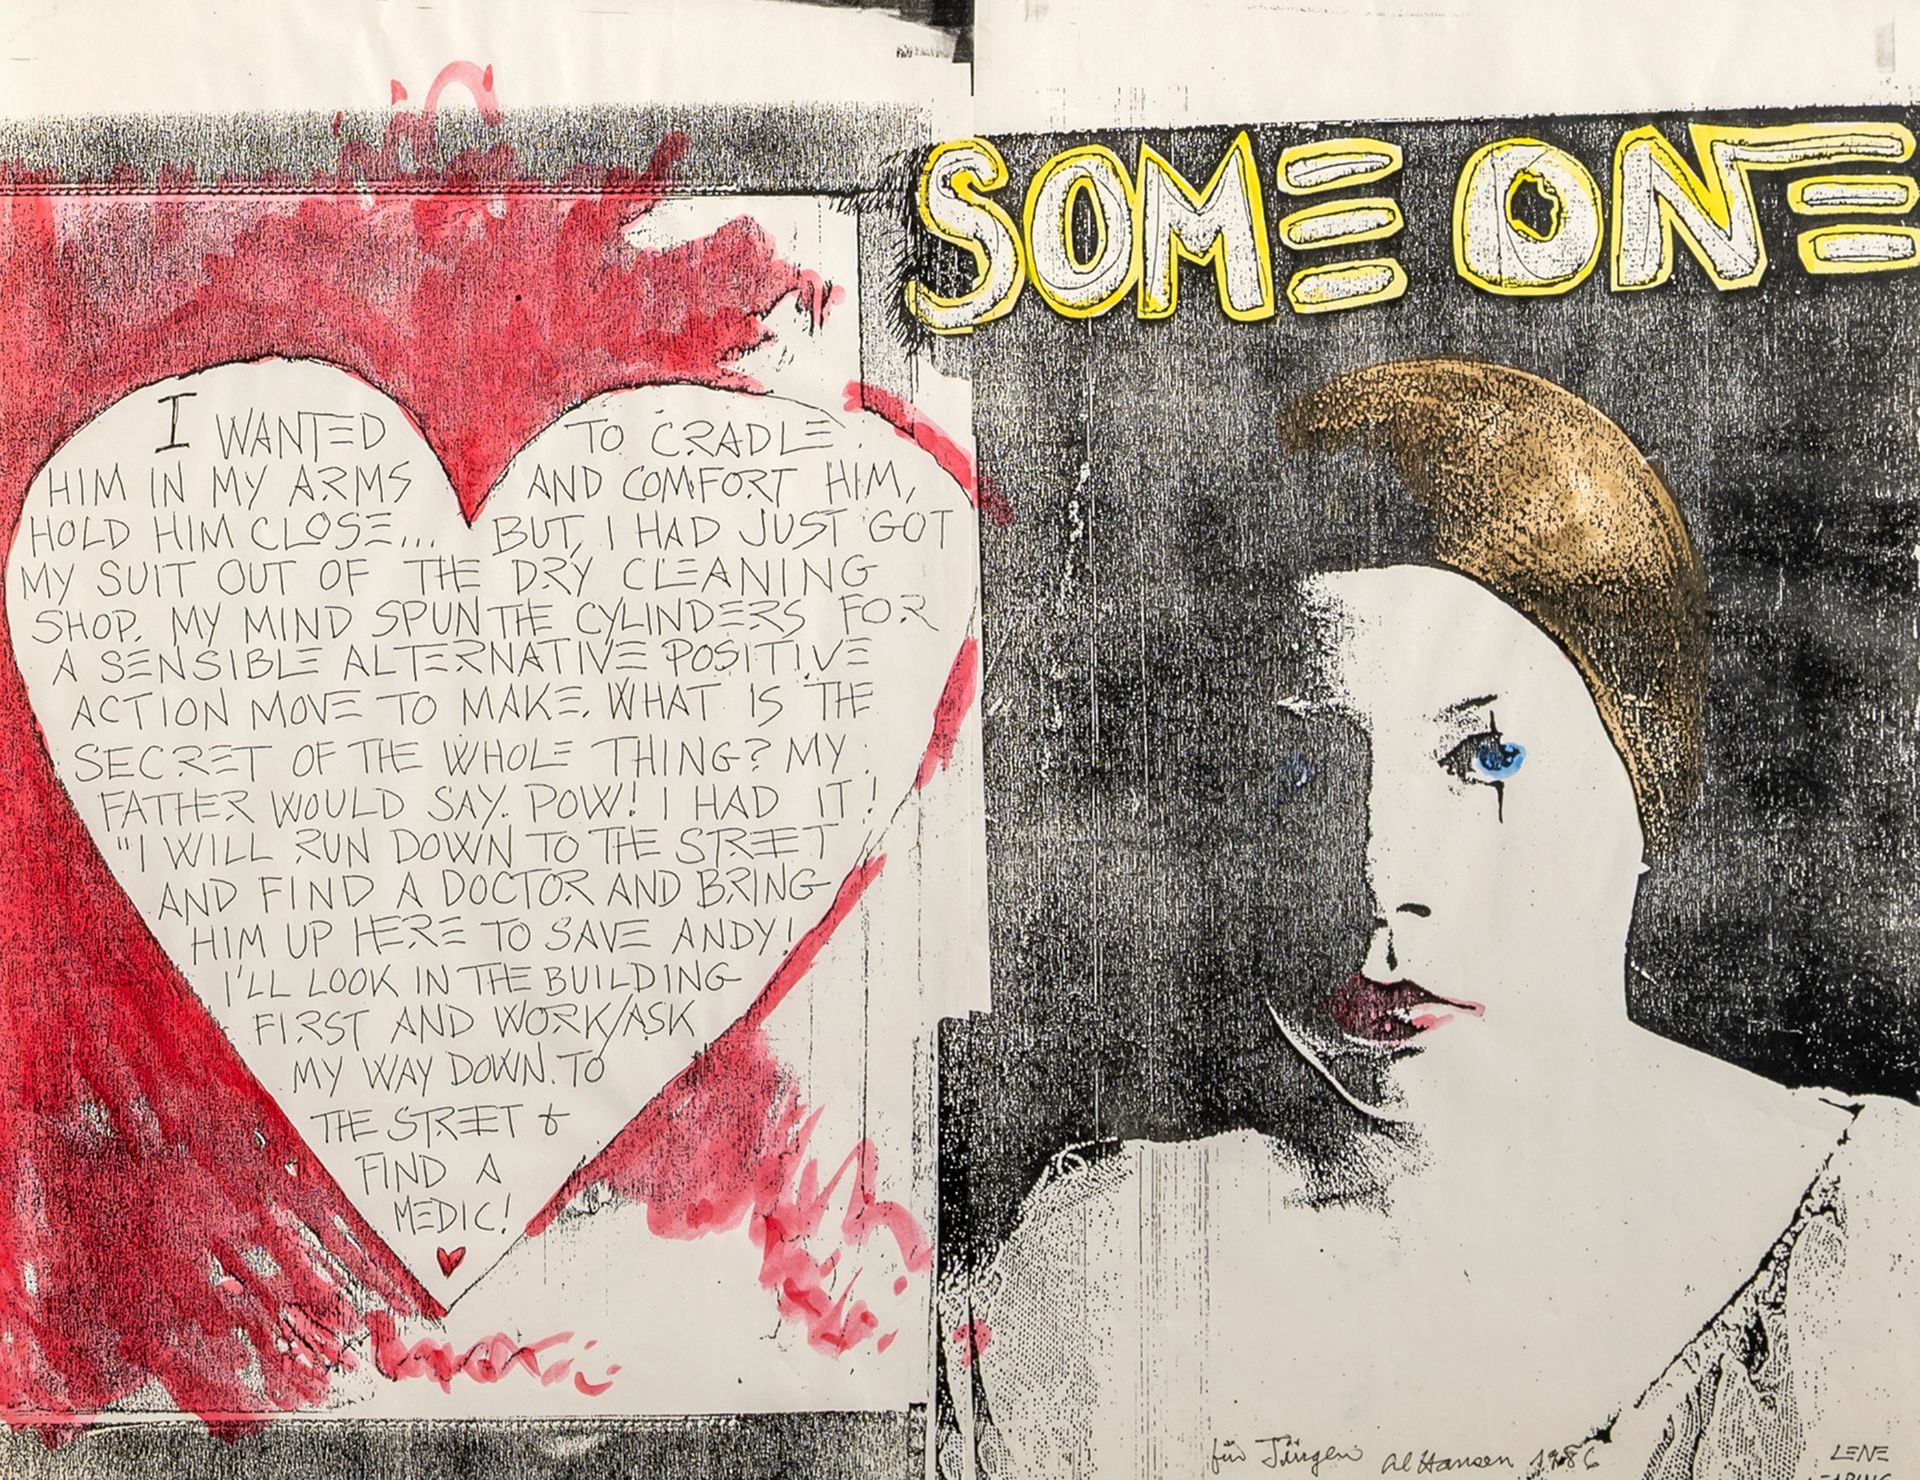 I WANTED TO CRADLE
HIM IN MY ARMS AND COMFORT HIM,
HOLD HIM CLOSE... BUT, I HAD JUST GOT
MY SUIT OUT OF THE DRY CLEANING
SHOP. MY MIND SPUN THE CYLINDERS FOR
A SENSIBLE ALTERNATIVE POSITIVE
ACTION MOVE TO MAKE. WHAT IS THE
SECRET OF THE WHOLE THING? MY
FATHER WOULD SAY. POW! I HAD IT!
"I WILL RUN DOWN TO THE STREET
AND FIND A DOCTOR AND BRING
HIM UP HERE TO SAVE ANDY!
I'LL LOOK IN THE BUILDING
FIRST AND WORK/ASK
MY WAY DOWN TO
THE STREET &
FIND A
MEDIC!
SOME ONE
für Jürgen Al Hansen 1986
LENE